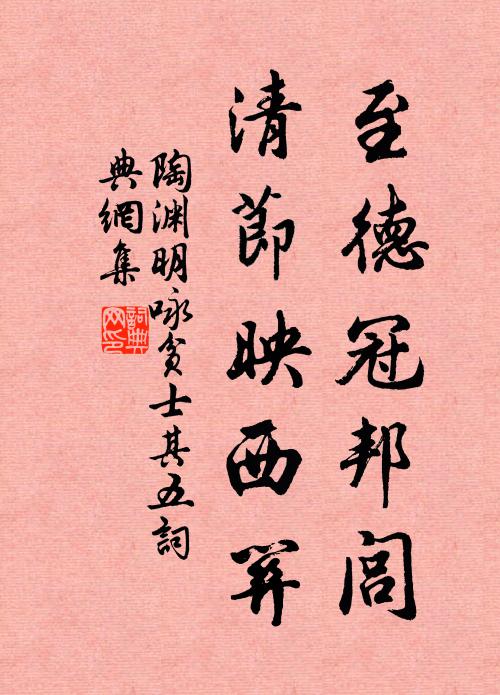 至德冠邦閭
清節映西關
陶淵明咏貧士其五詞
典網集
詞典
网印